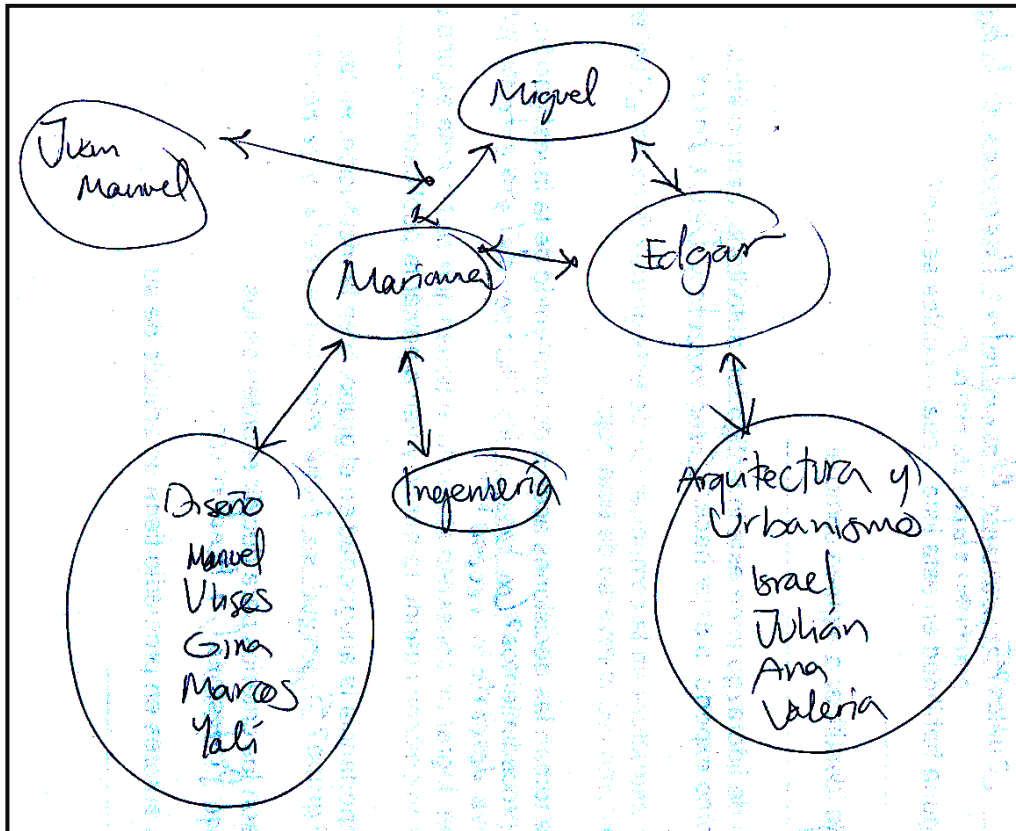 Miguel
Juan
Manuel
Edgar
Mariana
Diseño
Manuel
Ulises
Gina
Marcos
Yalí
Ingeniería
Arquitectura y
Urbanismo
Israel
Julián
Ana
Valeria